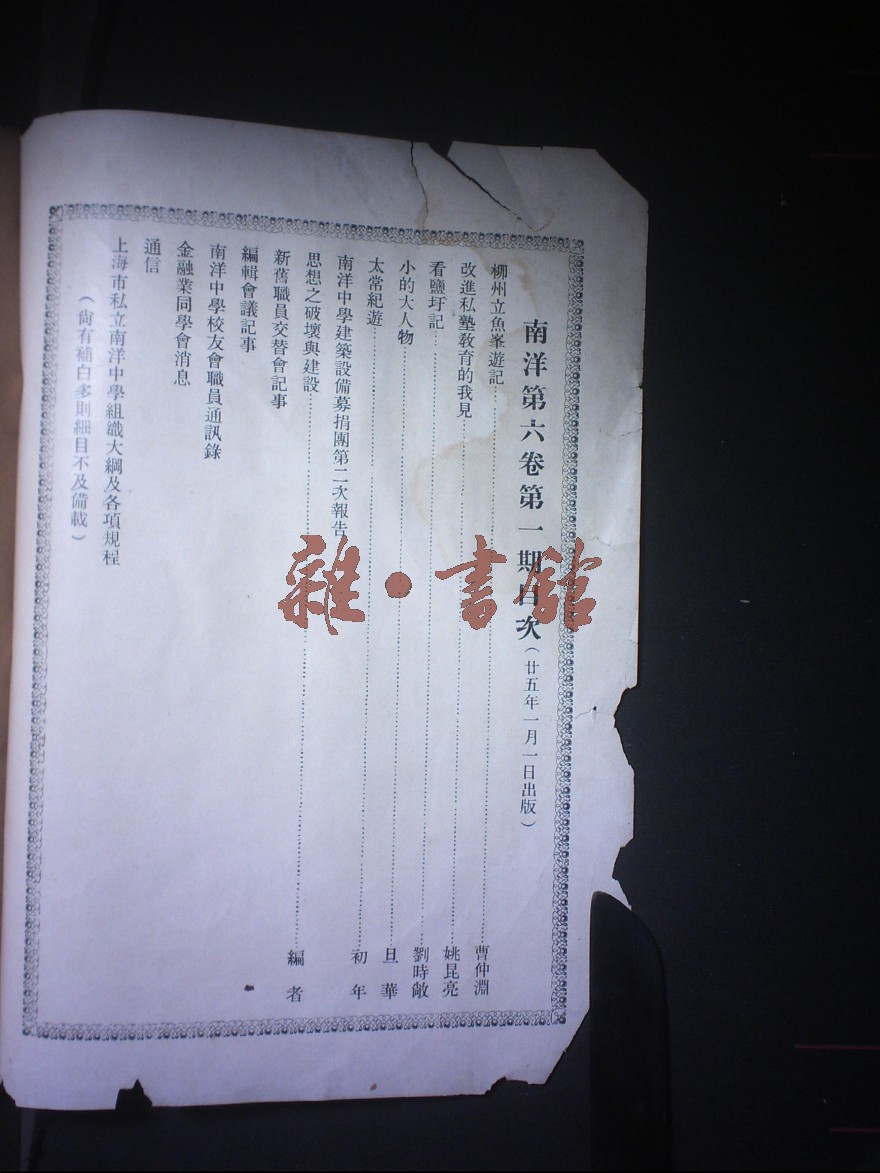 南洋第六卷第一期目次(廿五年一月一日出版)
柳州立魚峯遊記……曹仲淵
改進私塾教育的我見……姚昆亮
看鹽圩記……劉時敞
小的大人物……旦華
太常紀遊……初年
南洋中學建築設備募捐團第二次報告
思想之破壞與建設……編者
新舊職員交替會記事
編輯會議記事
南洋中學校友會職員通訊錄
金融業同學會消息
通信
上海市私立南洋中學組織大綱及各項規程
(尙有補白多則細目不及備載)
雜·書館